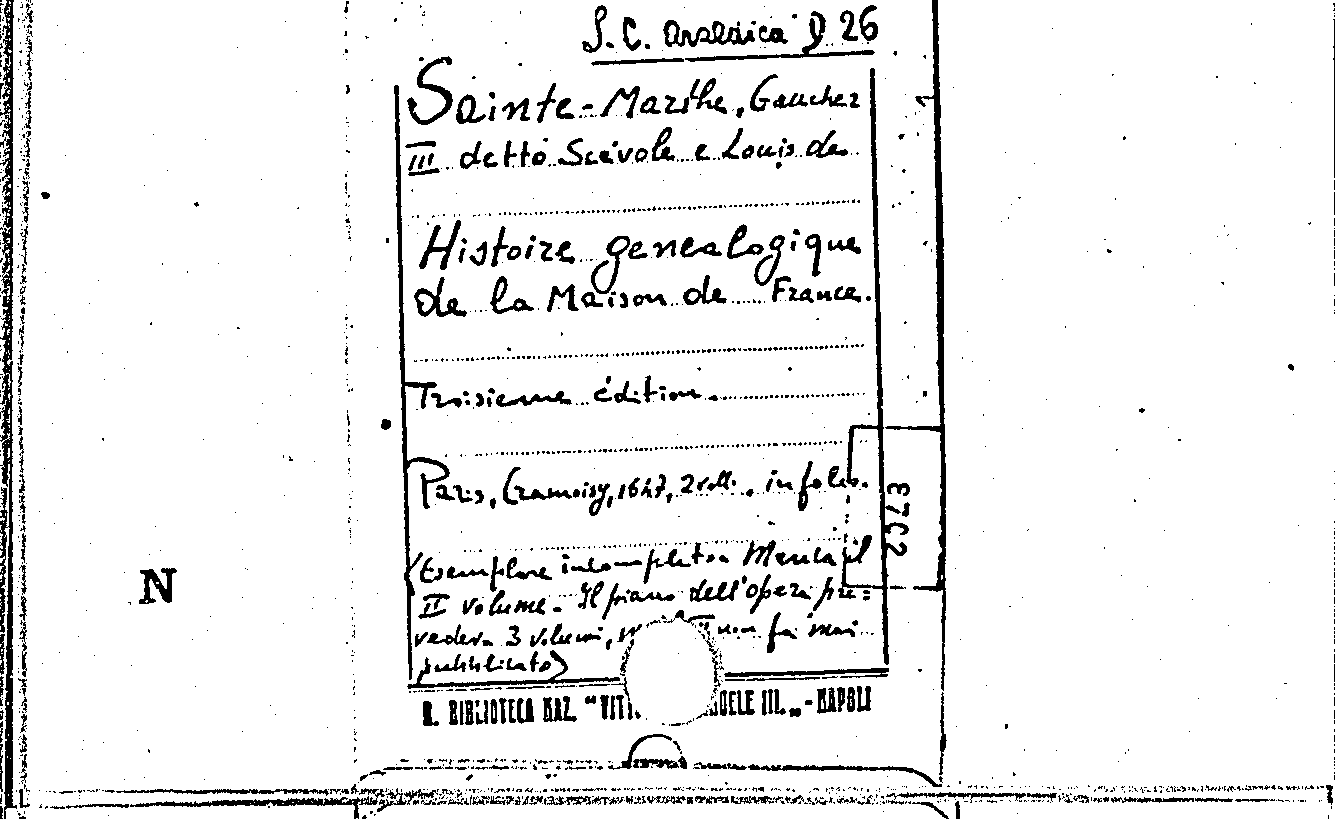 S. C. Araldica D 26
Sainte-Marthe, Gaucher
III detto Scévole e Louis de
Histoire genealogique
de la Maison de France.
Troisieme édition.
Paris, Cramoisy, 1647, 2 voll. in folio.
3702
(Esemplare incompleto. Manca il
N
II volume. Il piano dell'opera pre=
vedeva 3 volumi, non fu mai
pubblicato)
R. BIBLIOTECA NAZ. "VITT ELE III." - NAPOLI